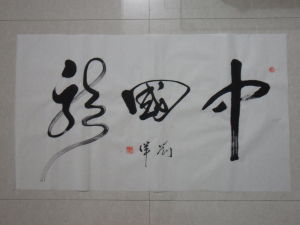 中國龍
劉偉